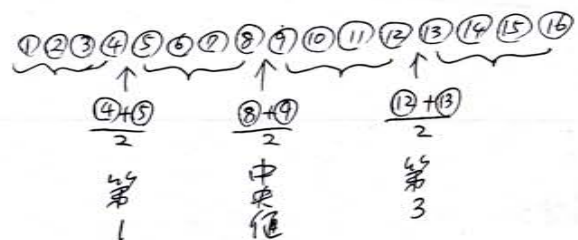 ①②③④⑤⑥⑦⑧⑨⑩⑪⑫⑬⑭⑮⑯
④+⑤ ⑧+⑨ ⑫+⑬
2 2 2
第1 中央値 第3